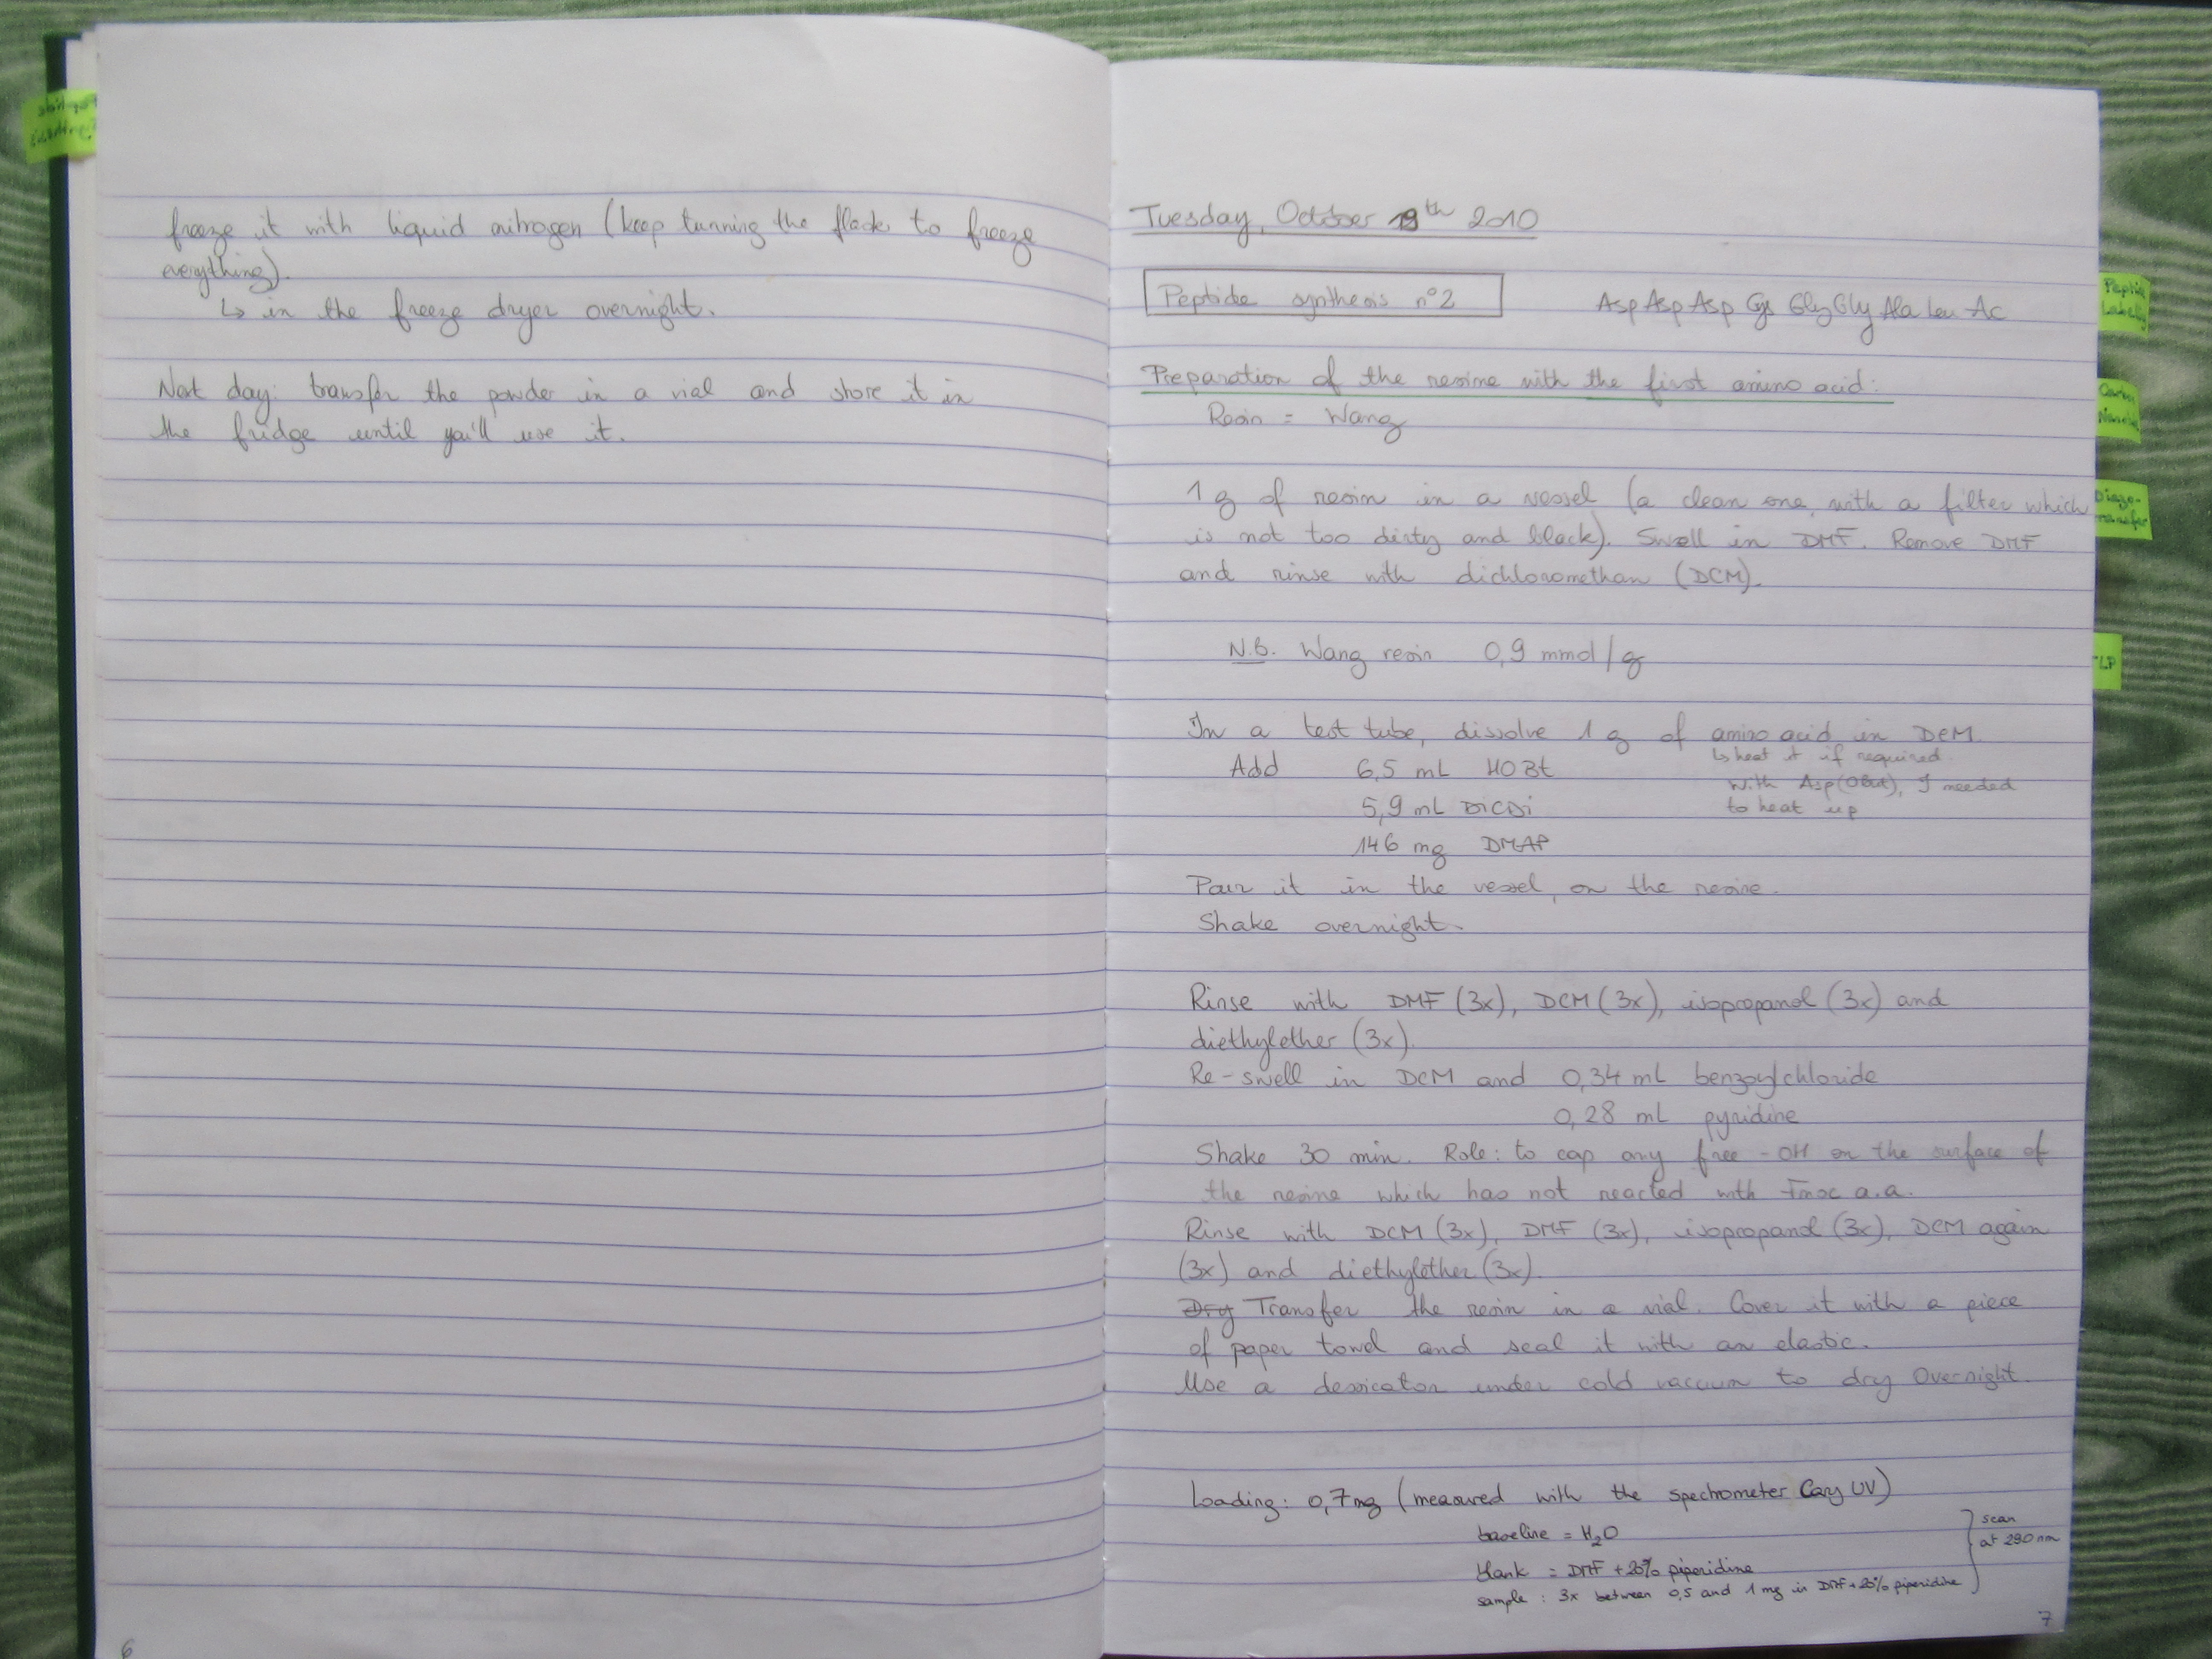 freeze it with liquid nitrogen (keep turning the flask to freeze
everything).
↳ in the freeze dryer overnight.
Next day: transfer the powder in a vial and store it in
the fridge until you'll use it.
6
Tuesday, October 19th 2010
Peptide synthesis n°2
Asp Asp Asp Cys Gly Gly Ala Leu - Ac
Preparation of the resine with the first amino acid:
Resin = Wang
1 g of resin in a vessel (a clean one, with a filter which
is not too dirty and black). Swell in DMF. Remove DMF
and rinse with dichloromethan (DCM).
N.B. Wang resin 0,9 mmol/g
In a test tube, dissolve 1 g of amino acid in DCM.
↳ heat it if required.
With Asp(OBut), I needed
to heat up
Add 6,5 mL HOBt
5,9 mL DiCDi
146 mg DMAP
Pour it in the vessel, on the resine.
Shake overnight.
Rinse with DMF (3x), DCM (3x), isopropanol (3x) and
diethylether (3x).
Re-swell in DCM and 0,34 mL benzoylchloride
0,28 mL pyridine
Shake 30 min. Role: to cap any free -OH on the surface of
the resine which has not reacted with Fmoc a.a.
Rinse with DCM (3x), DMF (3x), isopropanol (3x), DCM again
(3x) and diethylether (3x).
Dry Transfer the resin in a vial. Cover it with a piece
of paper towel and seal it with an elastic.
Use a dessicator under cold vacuum to dry overnight.
Loading: 0,7 mg (measured with the spechrometer Cary UV)
baseline = H2O
blank = DMF + 20% piperidine
sample : 3x between 0,5 and 1 mg in DMF + 20% piperidine
scan
at 290 nm
7
Peptide
Synthesis
Peptide
Labelling
Diazo-
transfer
TLP